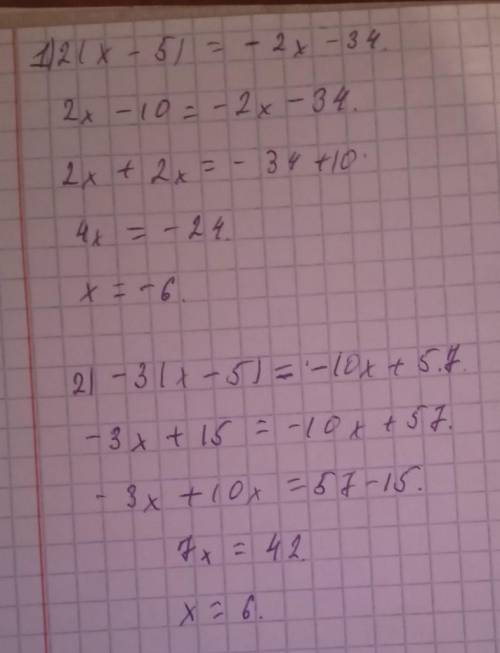 1) 2(x - 5) = - 2x - 34.
2x - 10 = - 2x - 34.
2x + 2x = - 34 + 10.
4x = - 24.
x = - 6.
2) - 3(x - 5) = - 10x + 5.7.
- 3x + 15 = - 10x + 57.
- 3x + 10x = 57 - 15.
7x = 42
x = 6.